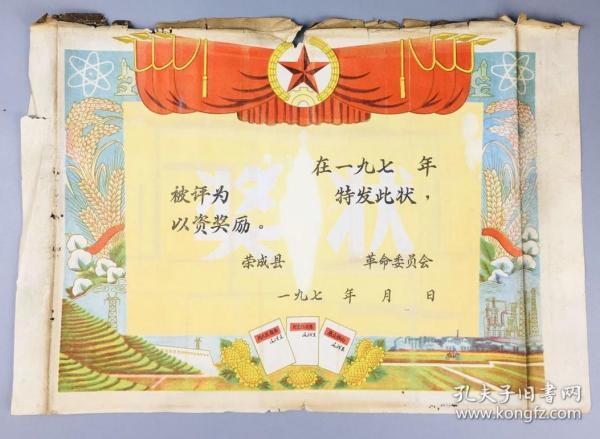 奖状
在一九七 年
被评为 特发此状，
以资奖励。
荣成县 革命委员会
一九七 年 月 日
孔夫子旧书网
www.kongfz.com